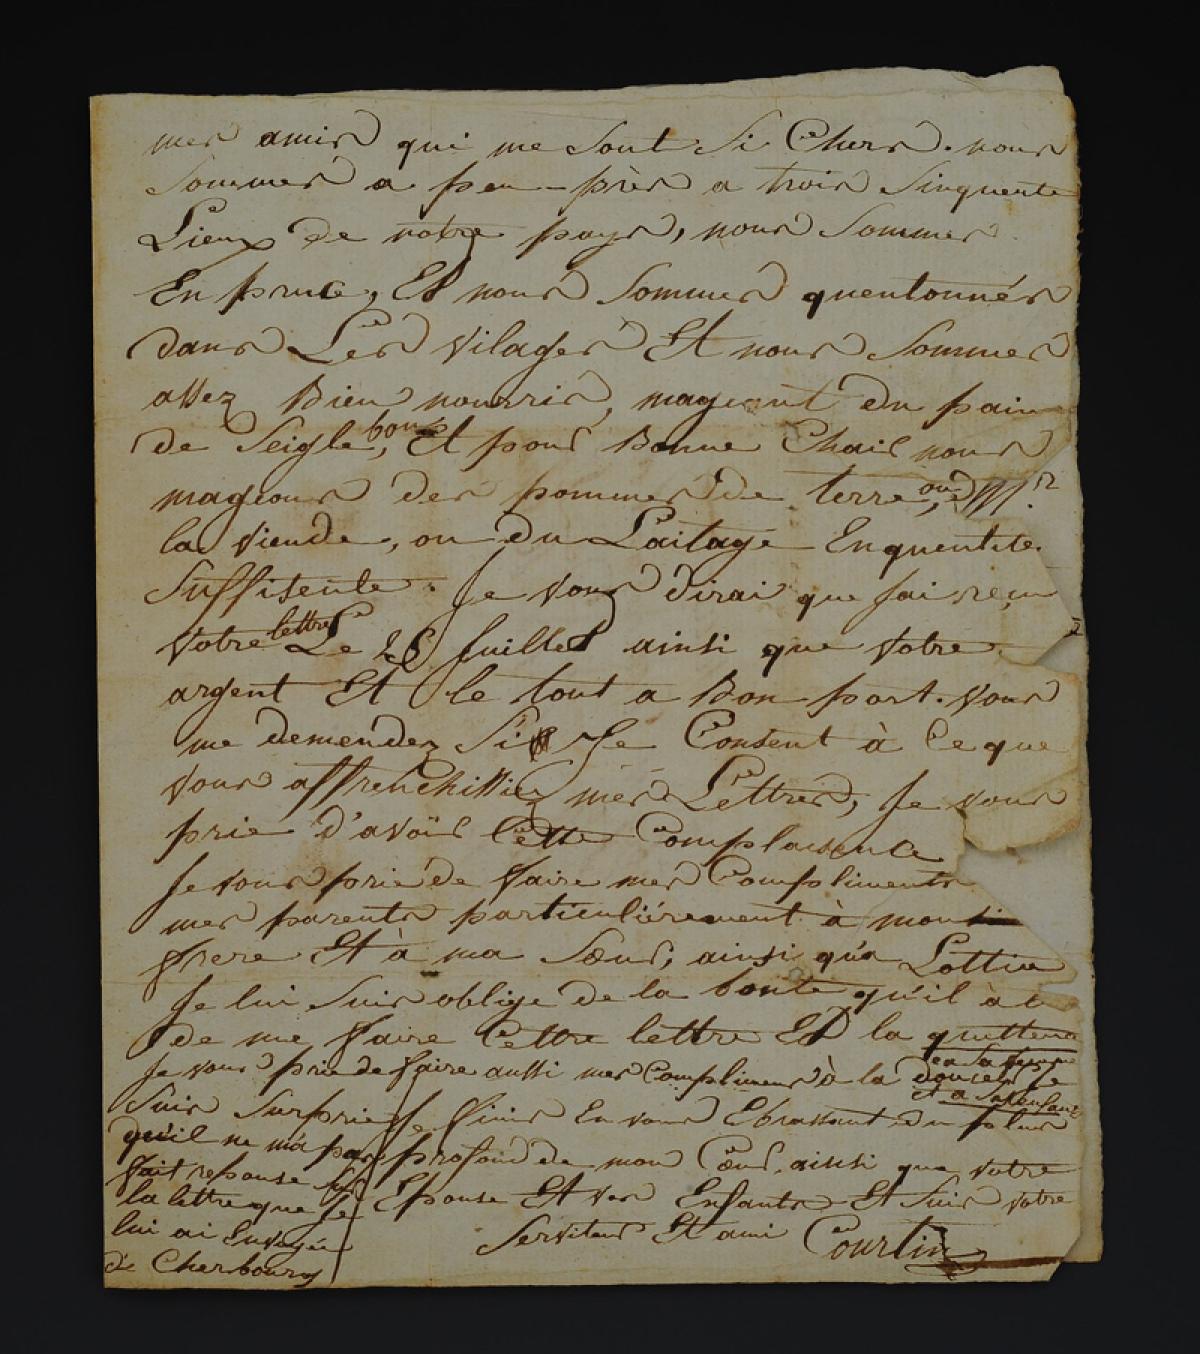 mes amis qui me sont si Chers. nous
sommes a peu-près a trois sinquente
Lieux de nôtre pays, nous sommes
En pruce, Et nous sommes quentonnés
dans Les vilages Et nous sommes
assez Bien nourris, mageant du pain
de seigle, bon Et pour Bonne Chair nous
mageons des pommes de terre, ou de
la viende, ou du Laitage En quentite
suffisente. Je vous dirai que jai reçu
votre lettre Le 26 Juillet ainsi que votre
argent Et le tout a Bon port. vous
me demendez si Je Consent à ce que
vous affrenchissiez mes Lettres, Je vous
prie d'avoir Cette Complaisence
Je vous prie de faire mes Compliments
mes parents particuliérement à mon
frere Et à ma Sœur, ainsi qu'a Lottin
Je lui suis oblige de la bonte qu'il à
de me faire Cettre lettre Et la
Je vous prie de faire aussi mes Compliment à la
et a sa femme
et a
Je finis En vous Ebrassant du plus
profond de mon Cœur, ainsi que votre
Epouse Et ves Enfants Et suis votre
serviteur Et ami Courtin
suis surpris
qu'il ne m'a pas
fait reponse sur
la lettre que Je
lui ai Envoyée
de Cherbourg